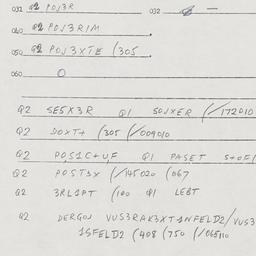 031 Q2 POJ3R 032 —
040 Q2 POJ3RIM
050 Q2 POJ3XTE (305
060 O
Q2 SE5X3R Q1 SOJXER (/172010
Q2 DOXT+ (305 (/009010
Q2 POS1C+UF Q1 PASET S+OF1
Q2 POST3X (/145020 (067
Q2 3RLAPT (100 Q1 LEBT
Q2 DERGOJ VUS3RAK3XT1NFELD2/VUS3
1SFELD2 (408 (750 (/065110